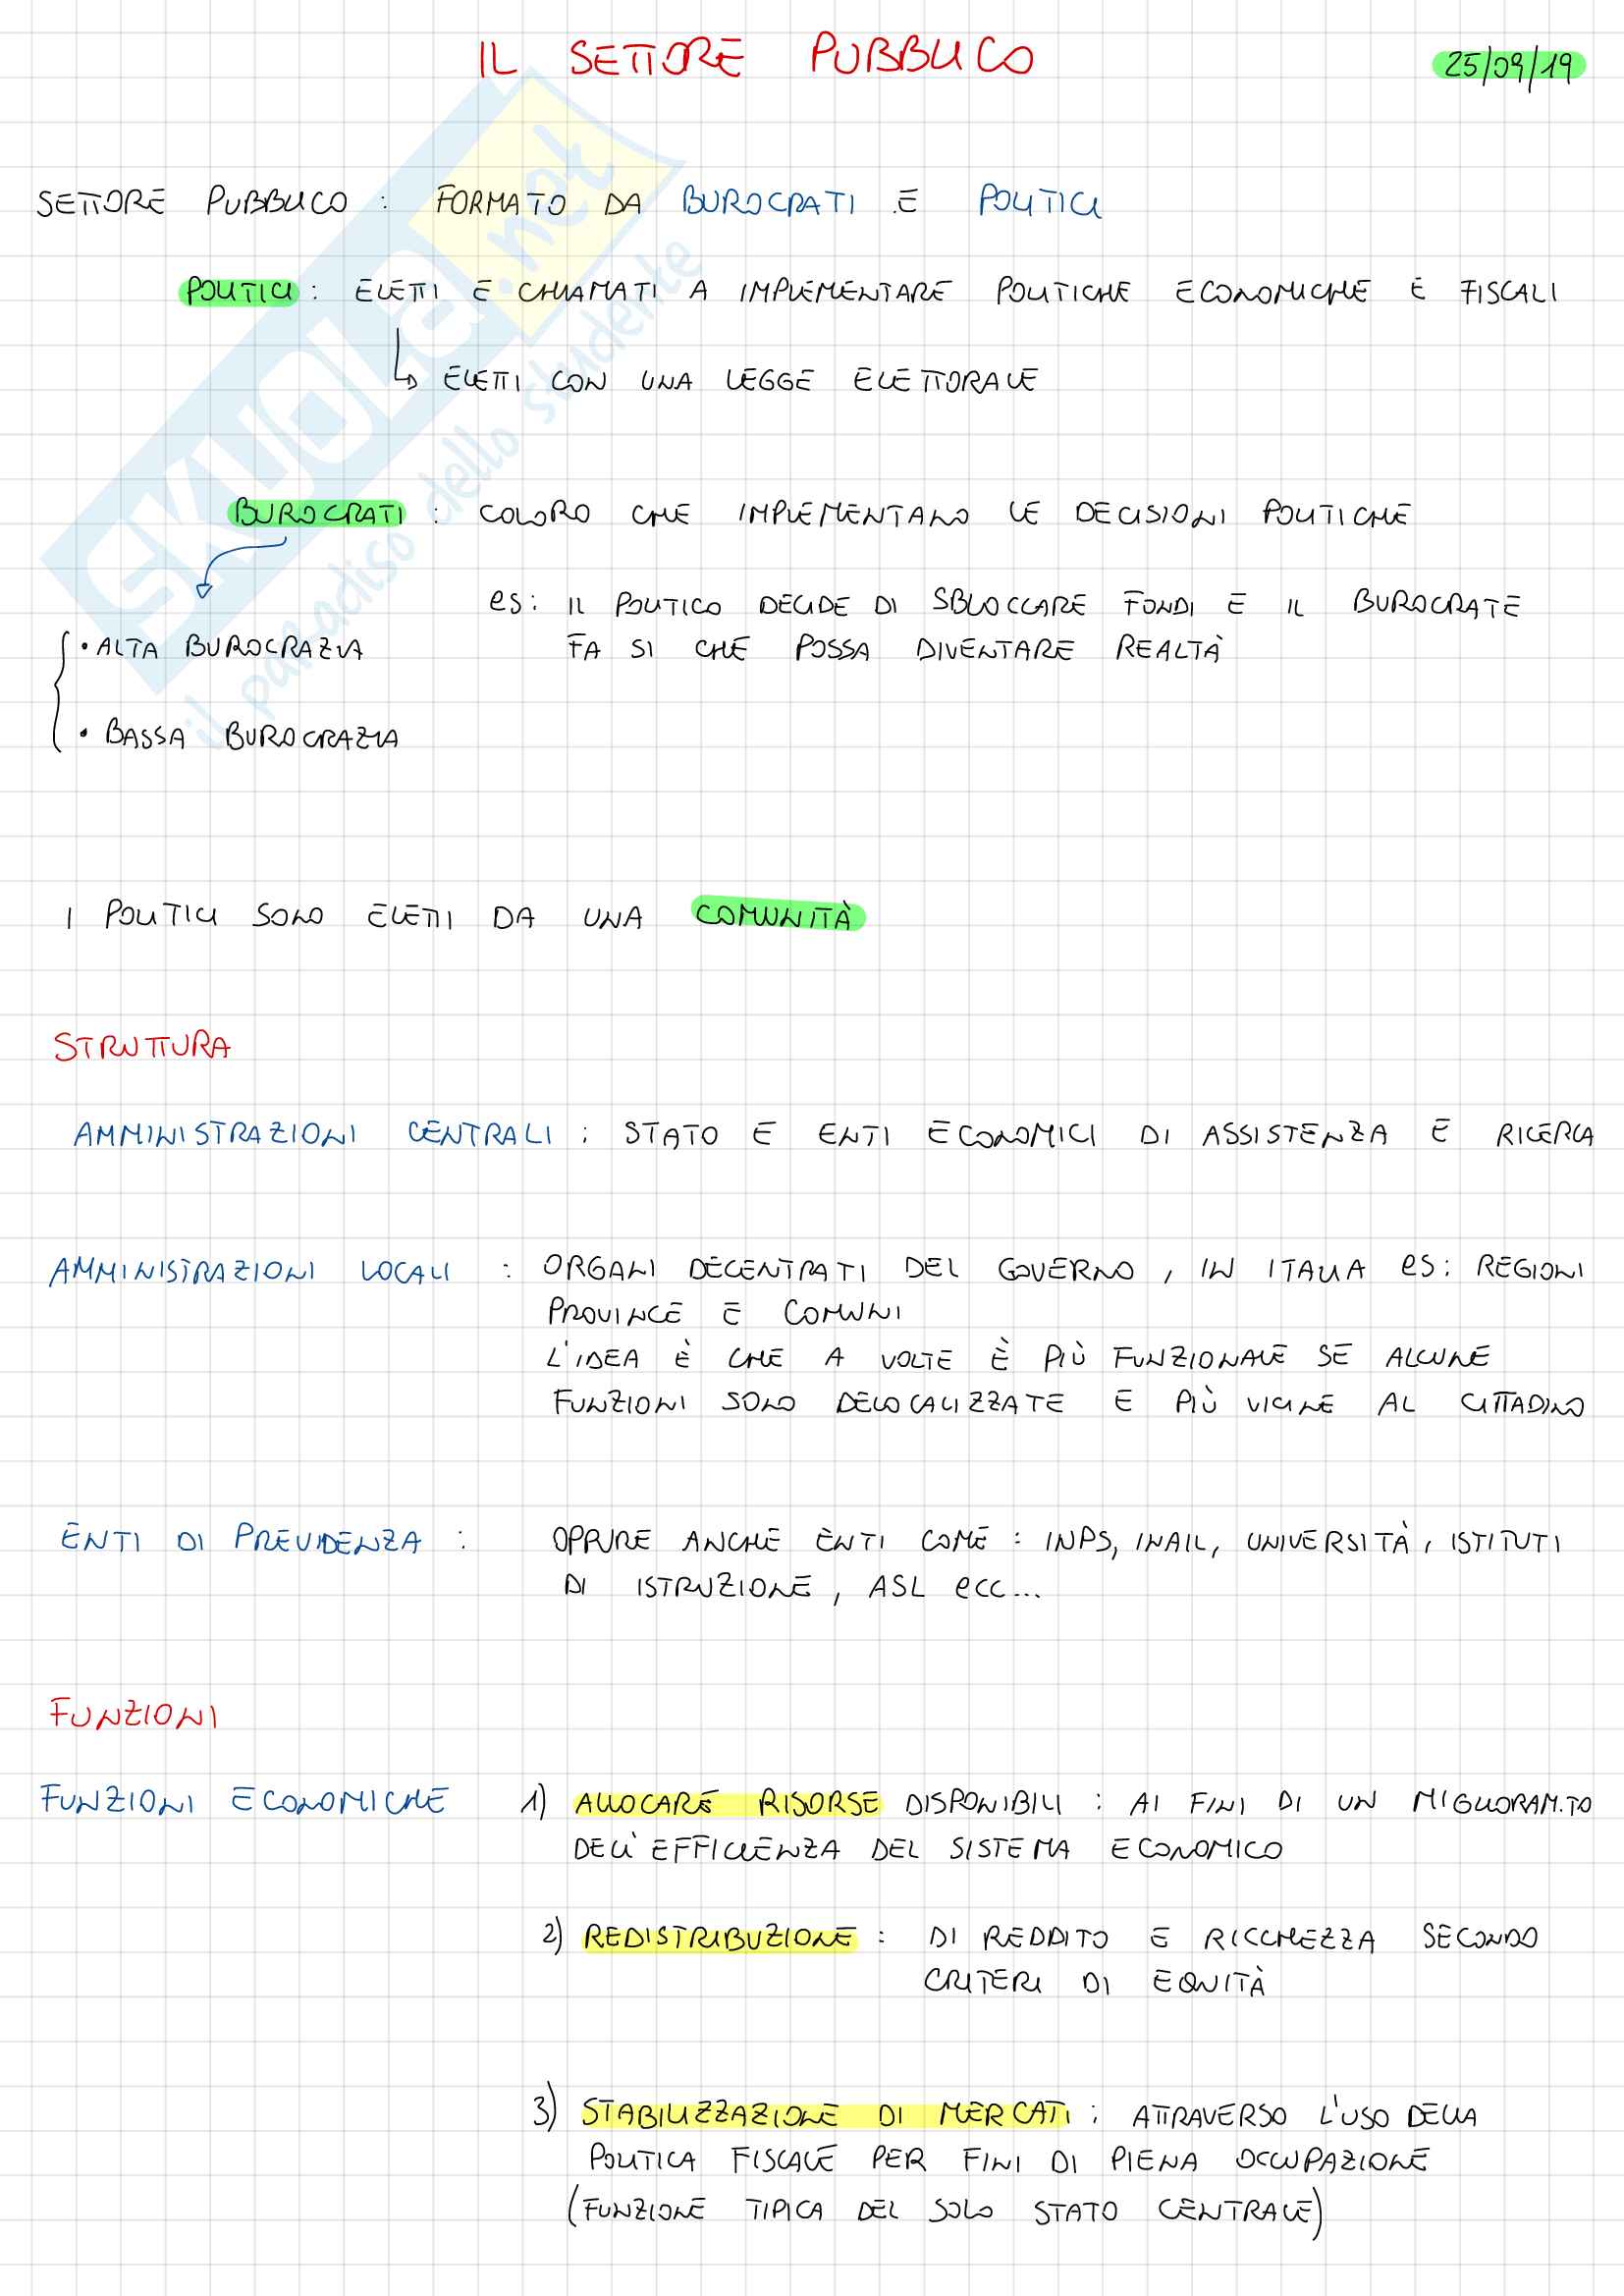 IL SETTORE PUBBLICO
25/09/19
SETTORE PUBBLICO : FORMATO DA BUROCRATI E POLITICI
POLITICI : ELETTI E CHIAMATI A IMPLEMENTARE POLITICHE ECONOMICHE E FISCALI
ELETTI CON UNA LEGGE ELETTORALE
BUROCRATI : COLORO CHE IMPLEMENTANO LE DECISIONI POLITICHE
es: IL POLITICO DECIDE DI SBLOCCARE FONDI E IL BUROCRATE
FA SI CHE POSSA DIVENTARE REALTÀ
• ALTA BUROCRAZIA
• BASSA BUROCRAZIA
I POLITICI SONO ELETTI DA UNA COMUNITÀ
STRUTTURA
AMMINISTRAZIONI CENTRALI : STATO E ENTI ECONOMICI DI ASSISTENZA E RICERCA
AMMINISTRAZIONI LOCALI : ORGANI DECENTRATI DEL GOVERNO, IN ITALIA es: REGIONI
PROVINCE E COMUNI
L'IDEA È CHE A VOLTE È PIÙ FUNZIONALE SE ALCUNE
FUNZIONI SONO DELOCALIZZATE E PIÙ VICINE AL CITTADINO
ENTI DI PREVIDENZA : OPPURE ANCHE ENTI COME : INPS, INAIL, UNIVERSITÀ, ISTITUTI
DI ISTRUZIONE, ASL ecc...
FUNZIONI
FUNZIONI ECONOMICHE 1) ALLOCARE RISORSE DISPONIBILI : AI FINI DI UN MIGLIORAM.TO
DELL'EFFICIENZA DEL SISTEMA ECONOMICO
2) REDISTRIBUZIONE : DI REDDITO E RICCHEZZA SECONDO
CRITERI DI EQUITÀ
3) STABILIZZAZIONE DI MERCATI : ATTRAVERSO L'USO DELLA
POLITICA FISCALE PER FINI DI PIENA OCCUPAZIONE
(FUNZIONE TIPICA DEL SOLO STATO CENTRALE)
SKUOLA.net
il paradiso dello studente